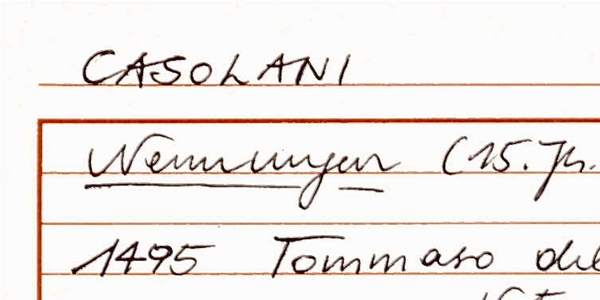 CASOLANI
Nennungen (15. Jh.
1495 Tommaso del